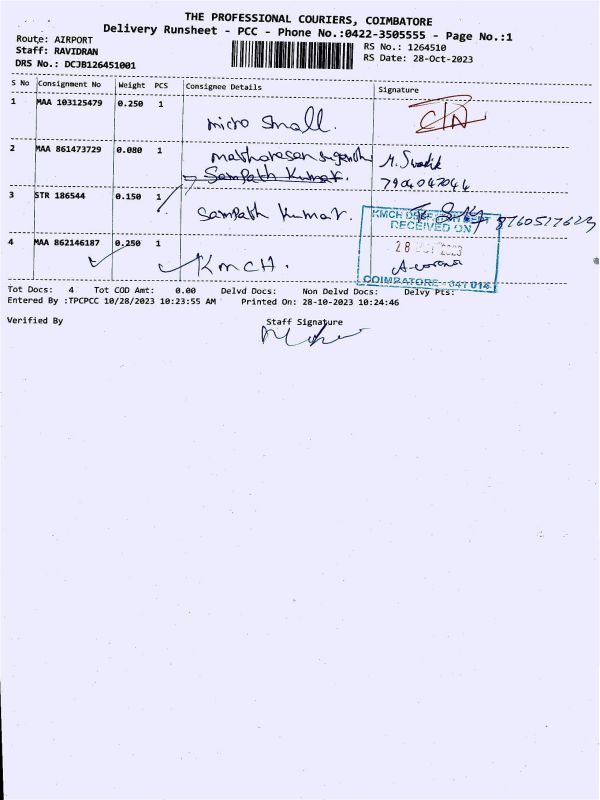 THE PROFESSIONAL COURIERS, COIMBATORE
Delivery Runsheet - PCC - Phone No.:0422-3505555 - Page No.:1
Route: AIRPORT
Staff: RAVIDRAN
DRS No.: DCJB126451001
RS No.: 1264510
RS Date: 28-Oct-2023
S No Consignment No Weight PCS Consignee Details Signature
1 MAA 103125479 0.250 1 micro small.
2 MAA 861473729 0.080 1
Sampath Kumar.
7904047044
3 STR 186544 0.150 1 Sampath Kumar. 8760517623
KMCH
RECEIVED ON
28 OCT 2023
COIMBATORE - 641 014
4 MAA 862146187 0.250 1 KMCH.
Tot Docs: 4 Tot COD Amt: 0.00 Delvd Docs: Non Delvd Docs: Delvy Pts:
Entered By :TPCPCC 10/28/2023 10:23:55 AM Printed On: 28-10-2023 10:24:46
Verified By Staff Signature